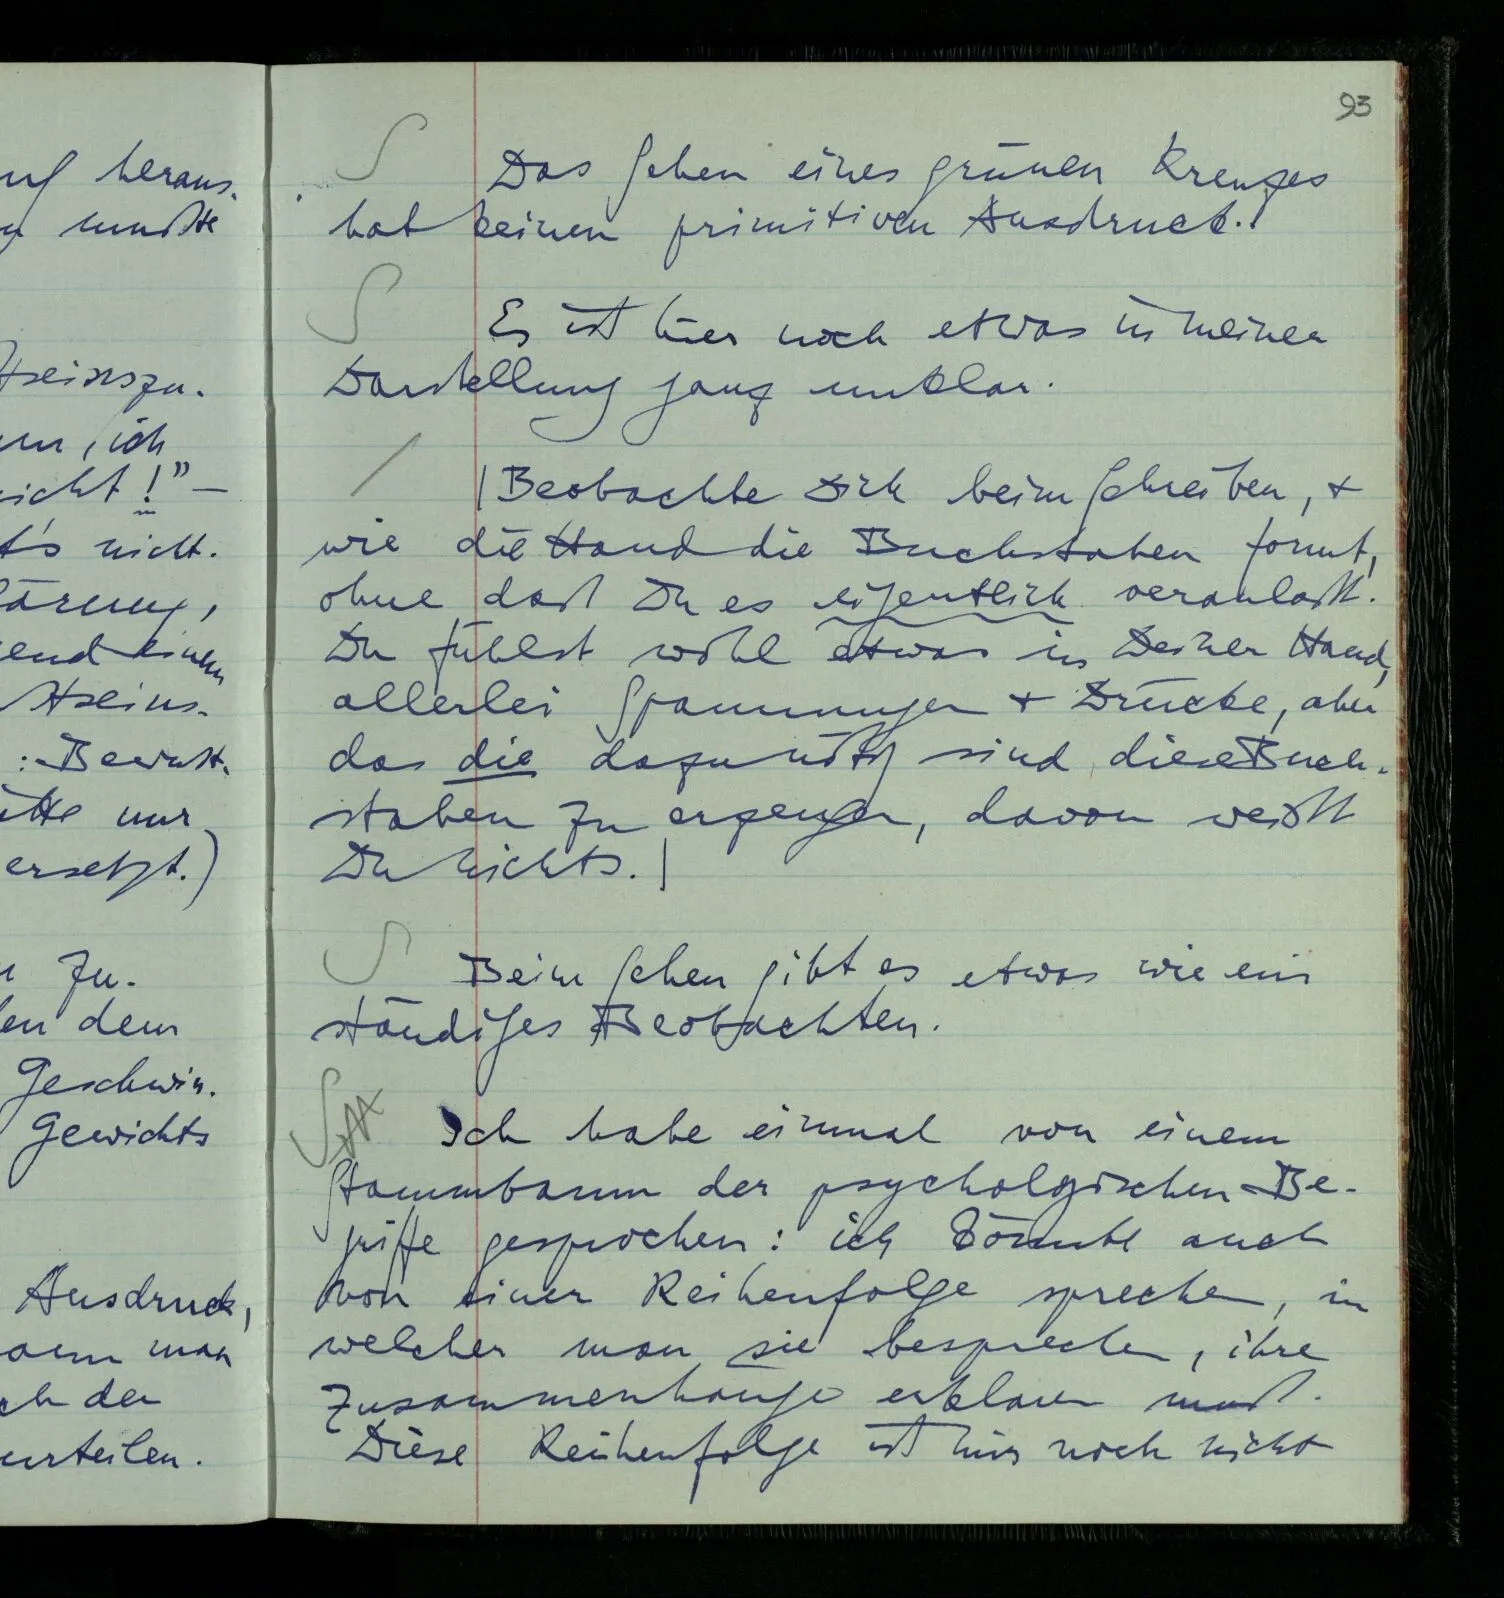 uf heraus.
mußte
tseinszu-
, ich
nicht!" –
t's nicht.
lärung,
end einem
tseins-
: Bewußt-
nur
ersetzt.)
zu.
en dem
Geschwin-
Gewichts
Ausdruck,
man
ch der
urteilen.
93
Das Sehen eines grünen Kreuzes
hat keinen primitiven Ausdruck.
Es ist hier noch etwas in meiner
Darstellung ganz unklar.
| Beobachte Dich beim Schreiben, +
wie die Hand die Buchstaben formt,
ohne daß Du es eigentlich veranlaßt.
Du fühlst wohl etwas in Deiner Hand,
allerlei Spannungen + Drücke, aber
das die dazu nötig sind diese Buch-
staben zu erzeugen, davon weißt
Du nichts. |
Beim Sehen gibt es etwas wie ein
ständiges Beobachten.
Ich habe einmal von einem
Stammbaum der psychologischen Be-
griffe gesprochen: ich könnte auch
von einer Reihenfolge sprechen, in
welcher man sie besprechen, ihre
Zusammenhänge erklären muß.
Diese Reihenfolge ist mir noch nicht